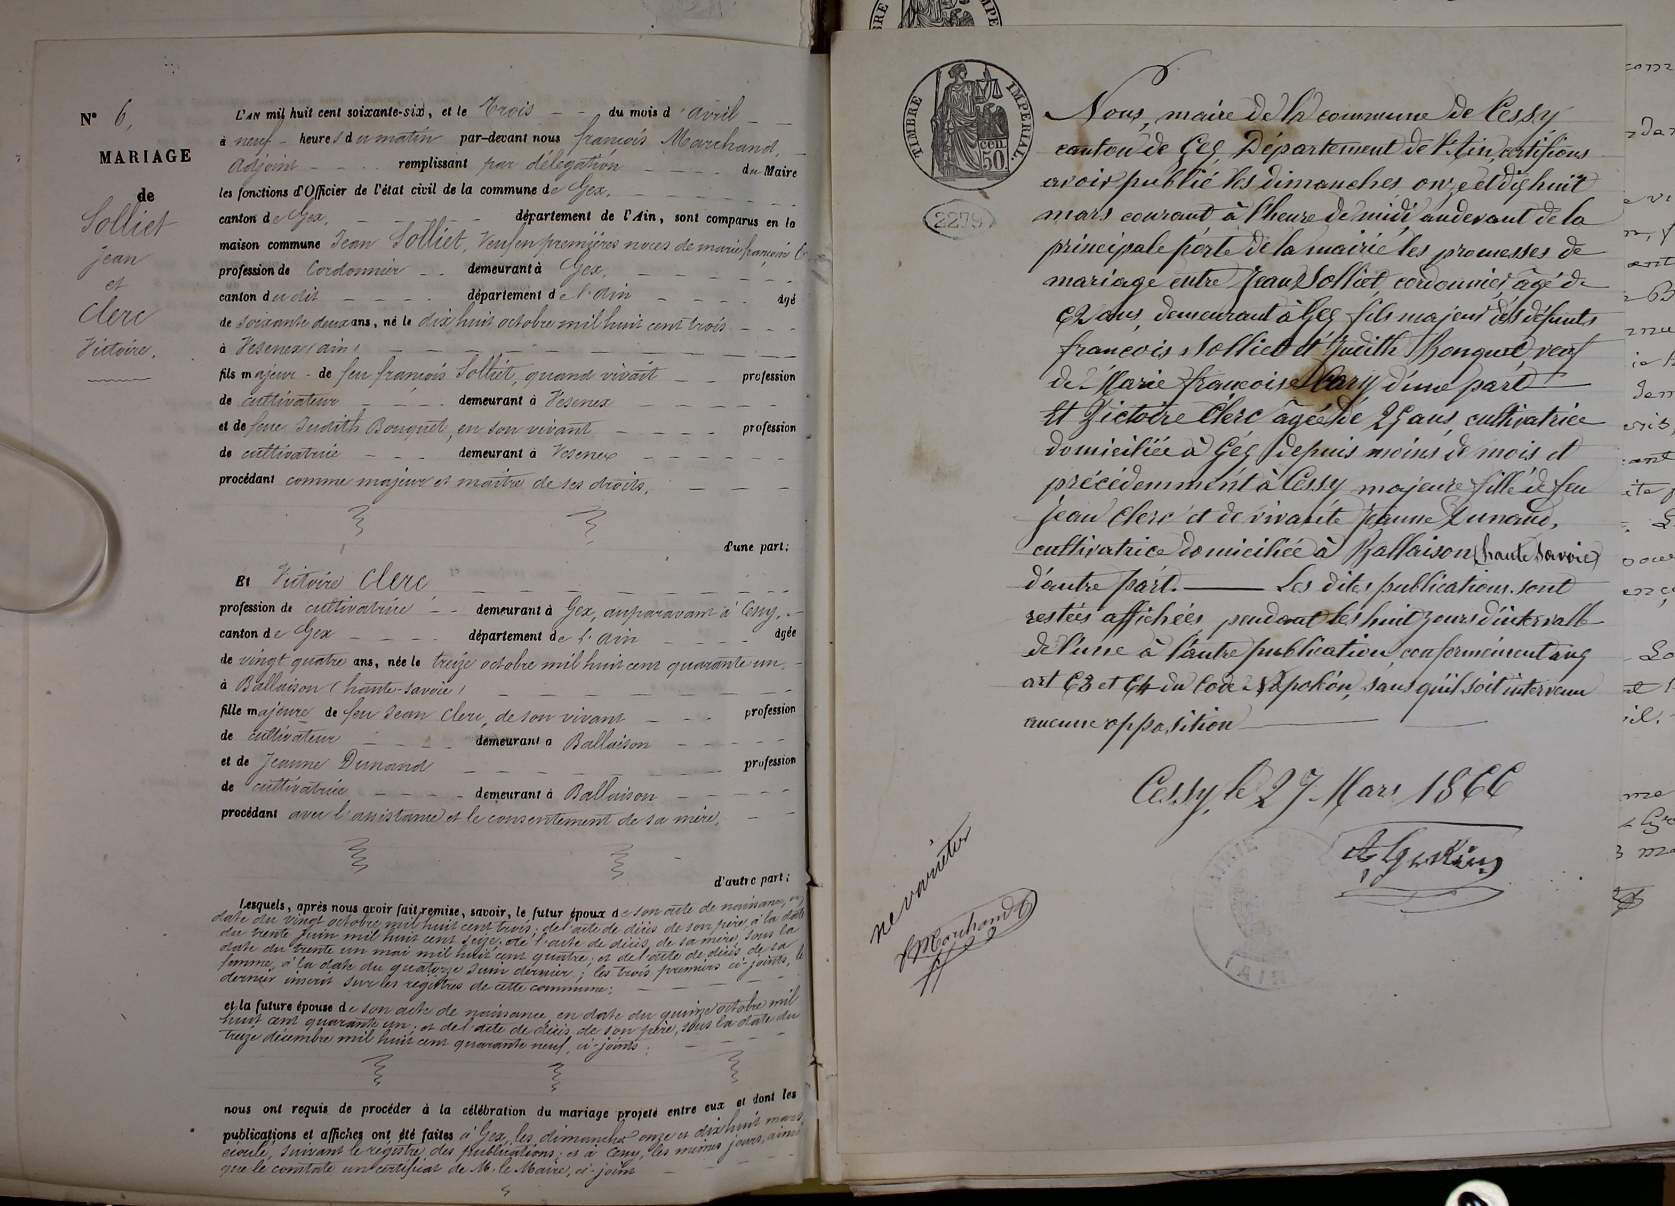 N° 6.
MARIAGE
de
Solliet
Jean
et
Clerc
Victoire.
L'AN mil huit cent soixante-six, et le Trois du mois d'avril
à neuf heures du matin par-devant nous françois Marchand,
adjoint remplissant par délégation du Maire
les fonctions d'Officier de l'état civil de la commune de Gex,
canton de Gex, département de l'Ain, sont comparus en la
maison commune Jean Solliet, veuf en premières noces de marie françoise
profession de Cordonnier demeurant à Gex,
canton du dit département de l'ain âgé
de soixante deux ans, né le dix huit octobre mil huit cent trois
à Vesenex (ain)
fils majeur de feu françois Solliet, quand vivait profession
de cultivateur demeurant à Vesenex
et de feue Judith Bouquet, en son vivant profession
de cultivatrice demeurant à Vesenex
procédant comme majeur et maître de ses droits,
d'une part;
Et Victoire Clerc
profession de cultivatrice demeurant à Gex, auparavant à Cessy,
canton de Gex département de l'ain âgée
de vingt quatre ans, née le treize octobre mil huit cent quarante un
à Ballaison (haute-savoie)
fille majeure de feu Jean Clerc, de son vivant profession
de cultivateur demeurant à Ballaison
et de Jeanne Dunand profession
de cultivatrice demeurant à Ballaison
procédant avec l'assistance et le consentement de sa mère,
d'autre part;
Lesquels, après nous avoir fait remise, savoir, le futur époux de son acte de naissance, en
date du vingt octobre mil huit cent trois; de l'acte de décès de son père, à la date
du trente Juin mil huit cent seize; de l'acte de décès de sa mère, sous la
date du trente un mai mil huit cent quatre; et de l'acte de décès de sa
femme, à la date du quatorze Juin dernier; les trois premiers ci-joints, le
dernier inscrit sur les registres de cette commune;
et la future épouse de son acte de naissance, en date du quinze octobre mil
huit cent quarante un; et de l'acte de décès de son père, sous la date du
treize décembre mil huit cent quarante neuf, ci-joints;
nous ont requis de procéder à la célébration du mariage projeté entre eux et dont les
publications et affiches ont été faites à Gex, les dimanches onze et dix huit mars
écoulé, suivant le registre des publications; et à Cessy, les mêmes jours, ainsi
que le constate un certificat de M. le Maire, ci-joint
TIMBRE IMPERIAL
50 cen
2279
Nous, maire de la commune de Cessy
canton de Gex, Département de l'Ain, certifions
avoir publié les dimanches onze et dix huit
mars courant à l'heure de midi au devant de la
principale porte de la mairie les promesses de
mariage entre Jean Solliet, cordonnier âgé de
62 ans, demeurant à Gex fils majeur des défunts
françois Solliet et Judith Bouquet, veuf
de Marie françoise d'une part
Et Victoire Clerc âgée de 25 ans, cultivatrice
domiciliée à Gex depuis moins de mois et
précédemment à Cessy majeure fille de feu
jean Clerc et de vivante Jeanne Dunand,
cultivatrice domiciliée à Ballaison (haute Savoie)
d'autre part. Les dites publications sont
restées affichées pendant les huit jours d'intervalle
de l'une à l'autre publication conformément aux
art 63 et 64 du Code Napoléon, sans qu'il soit intervenu
aucune opposition
Cessy, le 27 Mars 1866
ne varietur
Marchand
MAIRIE
(AIN)